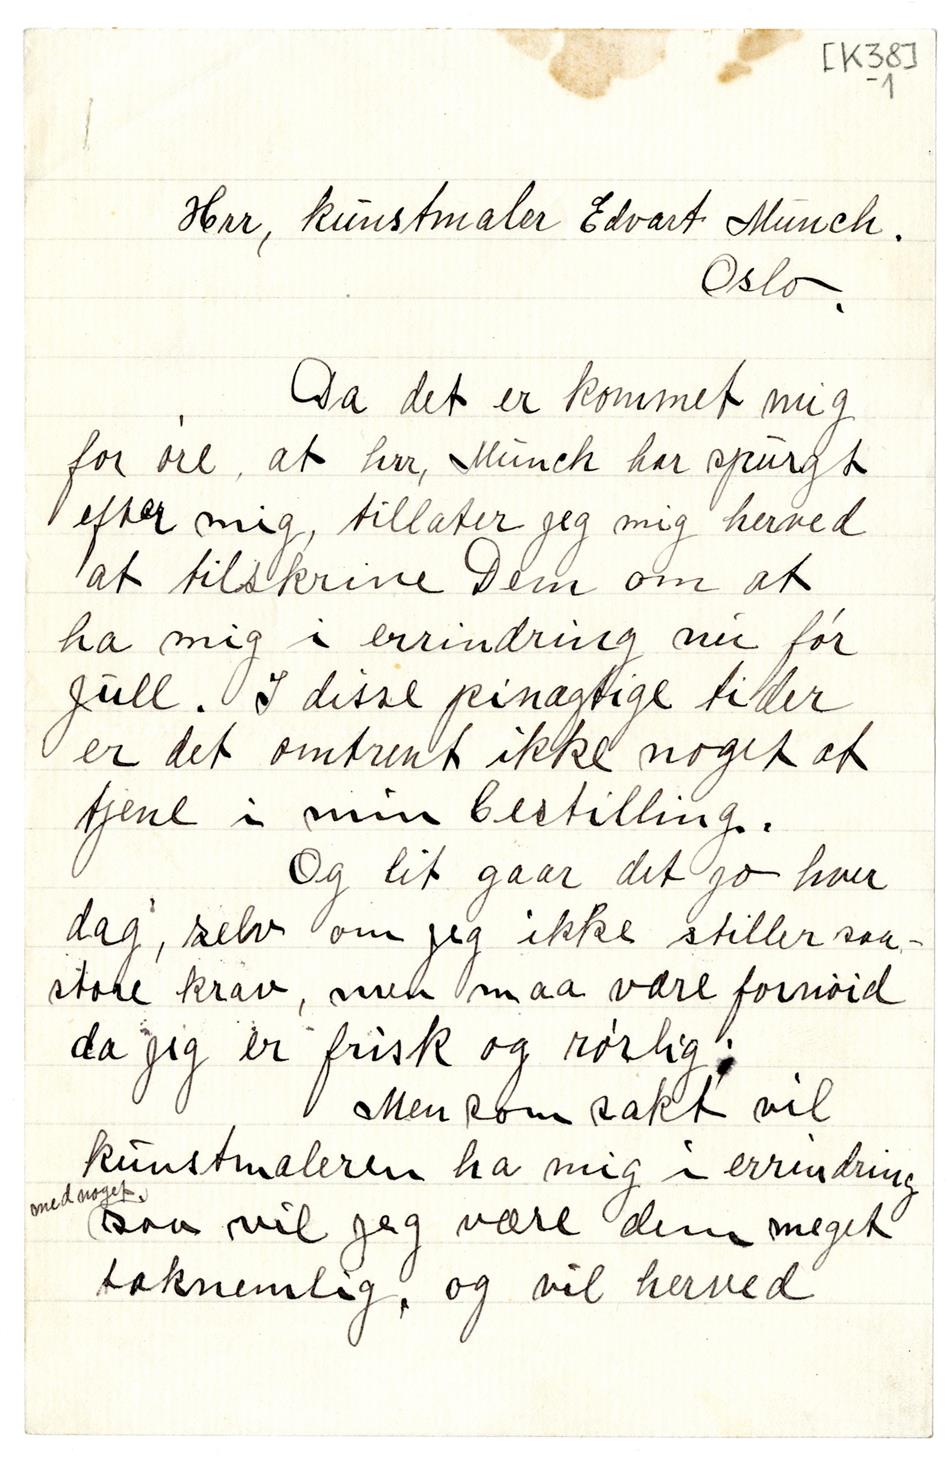 [K38]
-1
Hrr, kunstmaler Edvart Munch.
Oslo.
Da det er kommet mig
for óre, at hrr, Munch har spurgt
efter mig, tillater jeg mig herved
at tilskrive Dem om at
ha mig i errindring nu fór
jull. I disse pinagtige tider
er det omtrent ikke noget at
tjene i min bestilling.
Og lit gaar det jo hver
dag, selv om jeg ikke stiller saa-
store krav, men maa være fornóid
da jeg er frisk og rórlig.
Men som sakt vil
kunstmaleren ha mig i errindring
med noget.
saa vil jeg være dem meget
taknemlig, og vil herved